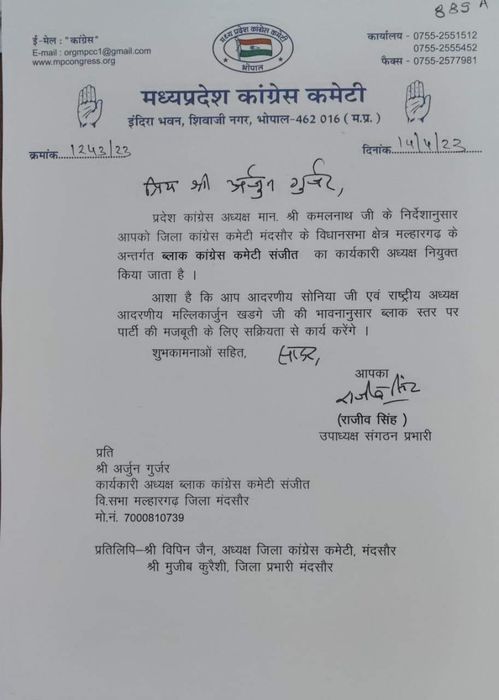 885 A
ई-मेल : "कांग्रेस"
E-mail : orgmpcc1@gmail.com
www.mpcongress.org
मध्य प्रदेश कांग्रेस कमेटी
भोपाल
कार्यालय - 0755-2551512
0755-2555452
फैक्स - 0755-2577981
मध्यप्रदेश कांग्रेस कमेटी
इंदिरा भवन, शिवाजी नगर, भोपाल-462 016 ( म.प्र. )
क्रमांक 1243/23
दिनांक 14/4/23
प्रिय श्री अर्जुन गुर्जर,
प्रदेश कांग्रेस अध्यक्ष मान. श्री कमलनाथ जी के निर्देशानुसार
आपको जिला कांग्रेस कमेटी मंदसौर के विधानसभा क्षेत्र मल्हारगढ़ के
अन्तर्गत ब्लाक कांग्रेस कमेटी संजीत का कार्यकारी अध्यक्ष नियुक्त
किया जाता है ।
आशा है कि आप आदरणीय सोनिया जी एवं राष्ट्रीय अध्यक्ष
आदरणीय मल्लिकार्जुन खडगे जी की भावनानुसार ब्लाक स्तर पर
पार्टी की मजबूती के लिए सक्रियता से कार्य करेंगे ।
शुभकामनाओं सहित, सादर,
आपका
राजीव सिंह
(राजीव सिंह )
उपाध्यक्ष संगठन प्रभारी
प्रति
श्री अर्जुन गुर्जर
कार्यकारी अध्यक्ष ब्लाक कांग्रेस कमेटी संजीत
वि.सभा मल्हारगढ़ जिला मंदसौर
मो.नं. 7000810739
प्रतिलिपि–श्री विपिन जैन, अध्यक्ष जिला कांग्रेस कमेटी, मंदसौर
श्री मुजीब कुरैशी, जिला प्रभारी मंदसौर